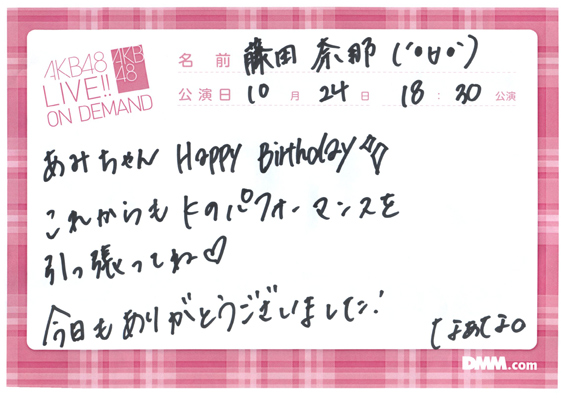 AKB48
LIVE!!
ON DEMAND
AKB
48
名前 藤田奈那 (´•∀•`)
公演日 10月24日 18:30公演
あみちゃん Happy Birthday
これからもKのパフォーマンスを
引っ張ってね♡
今日もありがとうございました!
なぁなo
DMM.com